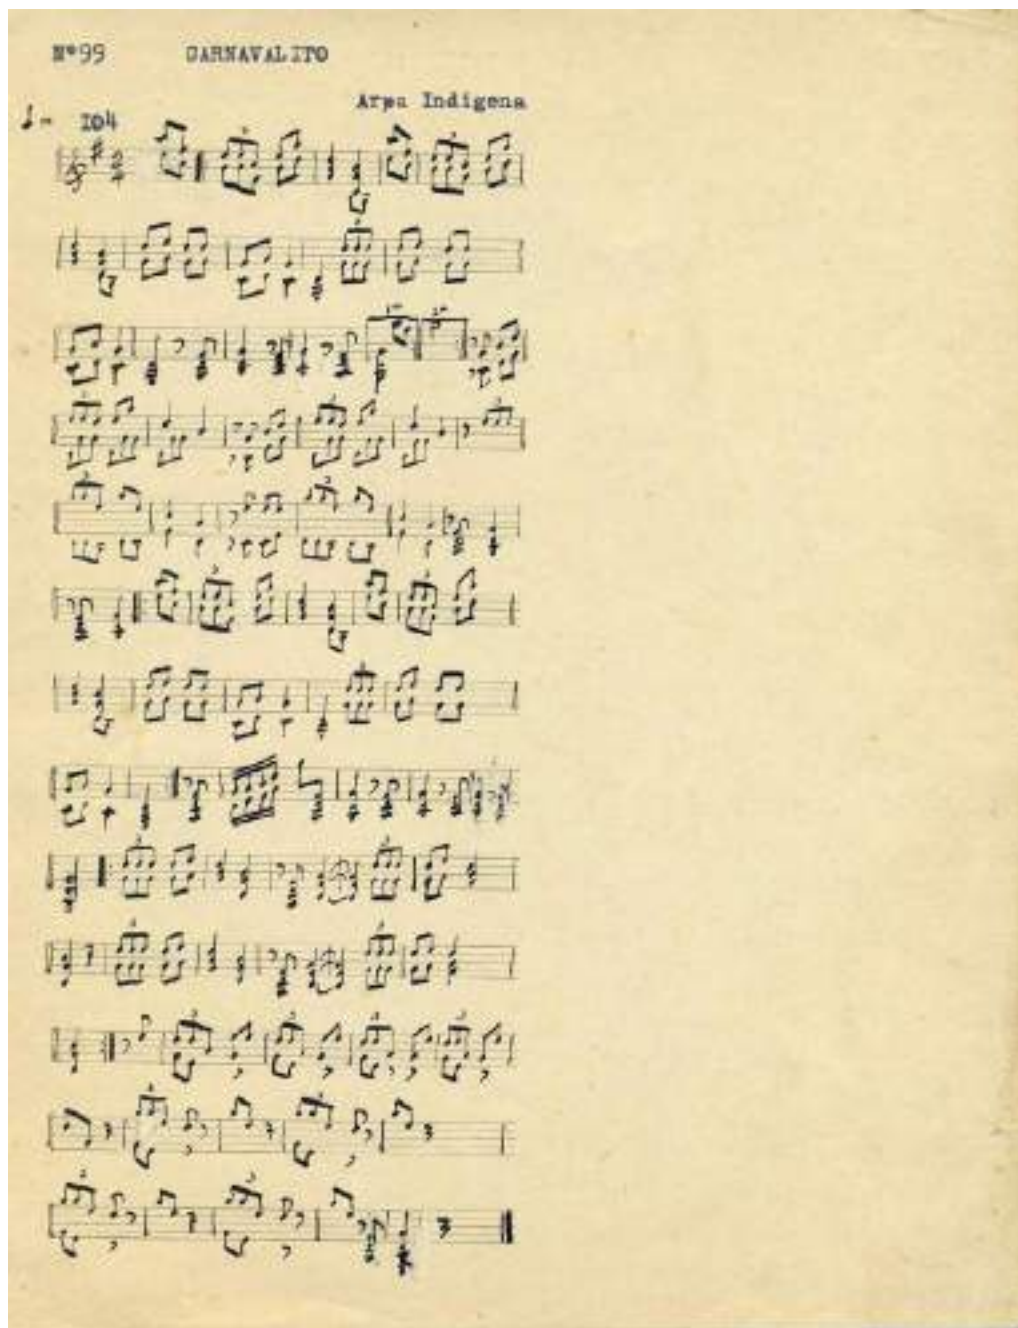 Nº99 CARNAVALITO
Arpa Indigena
♩= I04